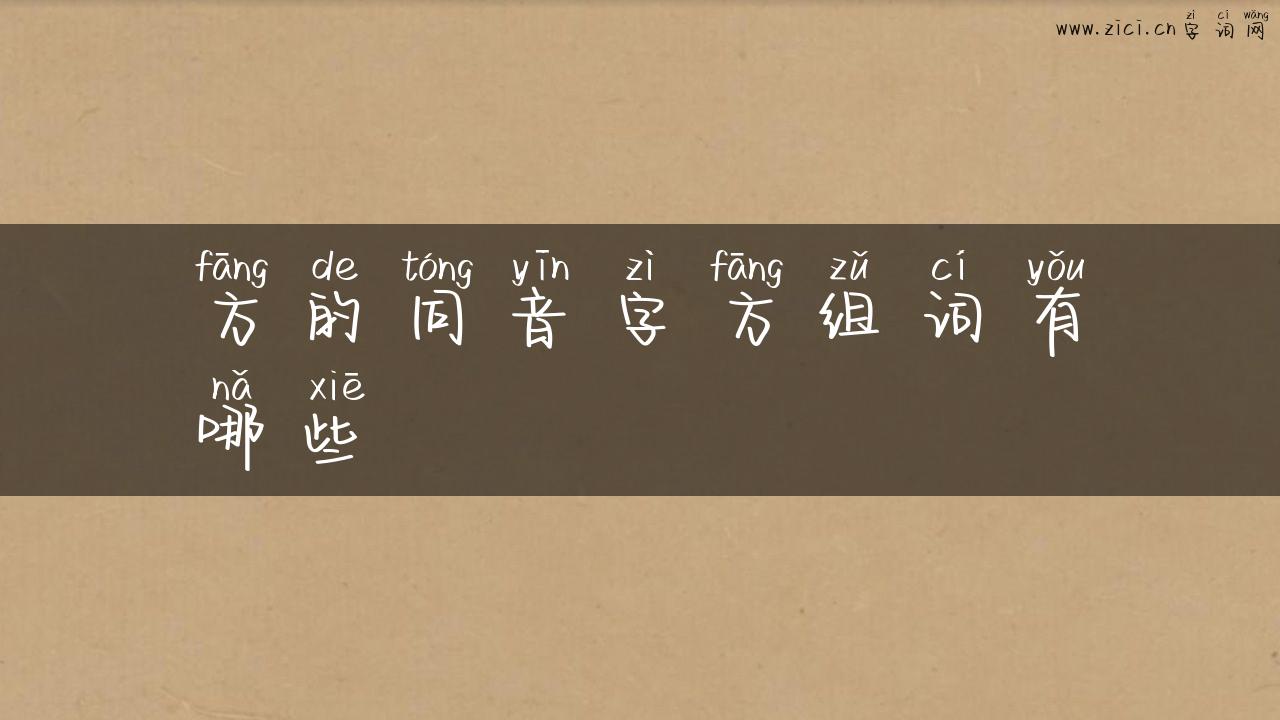 zì cí wǎng
www.zici.cn 字 词 网
fāng de tóng yīn zì fāng zǔ cí yǒu
方 的 同 音 字 方 组 词 有
nǎ xiē
哪 些